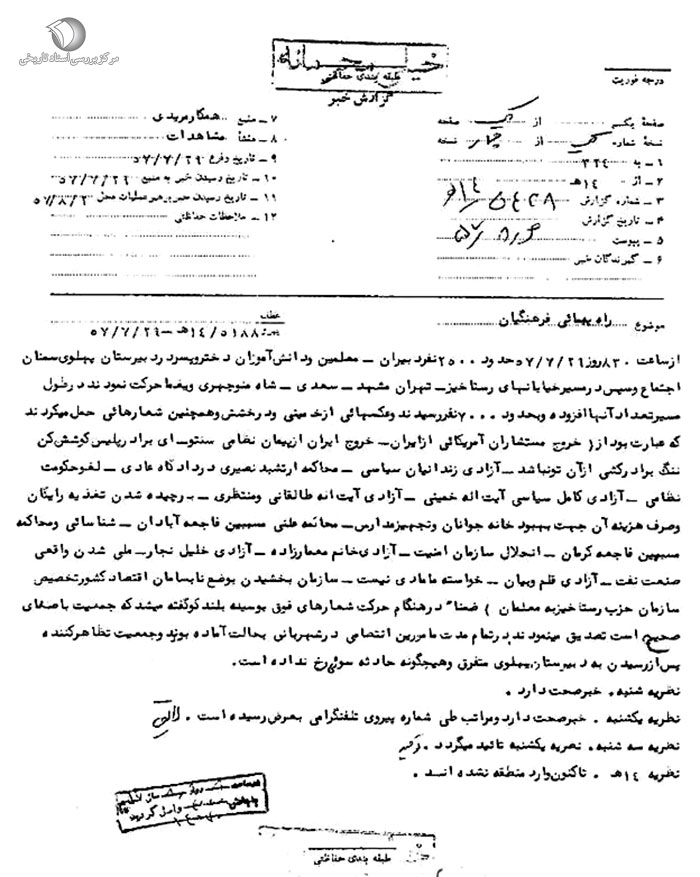 مرکز بررسی اسناد تاریخی
خیلی محرمانه
طبقه بندی حفاظتی
گزارش خبر
درجه فوریت
صفحه یکم از یک صفحه
نسخه شماره یک از چهار نسخه
۱ ـ به ۳۲۴
۲ ـ از ۱۴هـ
۳ ـ شماره گزارش
۴ ـ تاریخ گزارش
۵ ـ پیوست
۶ ـ گیرندگان خبر
۷ ـ منبع همکار مریدی
۸ ـ منشأ مشاهدات
۹ ـ تاریخ وقوع ۵۷/۷/۲۹
۱۰ ـ تاریخ رسیدن خبر به منبع ۵۷/۷/۲۹
۱۱ ـ تاریخ رسیدن خبر برهبر عملیات محل ۵۷/۸/۲
۱۲ ـ ملاحظات حفاظتی
موضوع راه پیمائی فرهنگیان
عطف
۱۴/۵۱۸۸هـ ـ ۵۷/۷/۲۹
از ساعت ۸۳۰ روز ۵۷/۷/۲۹ حدود ۲۵۰۰ نفر دبیران ـ معلمین و دانش آموزان دختر و پسر در دبیرستان پهلوی سمنان
اجتماع و سپس در مسیر خیابانهای رستاخیز ـ تهران مشهد ـ سعدی ـ شاه منوچهری ویغما حرکت نمودند در طول
مسیر تعداد آنها افزوده و بحدود ۷۰۰۰ نفر رسیدند و عکسهائی از خمینی و درخشش و همچنین شعارهائی حمل میکردند
که عبارت بود از ( خروج مستشاران آمریکائی از ایران ـ خروج ایران از پیمان نظامی سنتو ـ ای برادر پلیس کوشش کن
ننگ برادر کشی از آن تو نباشد ـ آزادی زندانیان سیاسی ـ محاکمه ارتشبد نصیری در دادگاه عادی ـ لغو حکومت
نظامی ـ آزادی کامل سیاسی آیت اله خمینی ـ آزادی آیت اله طالقانی و منتظری ـ برچیده شدن تغذیه رایگان
و صرف هزینه آن جهت بهبود خانه جوانان و تجهیز مدارس ـ محاکمه علنی مسببین فاجعه آبادان ـ شناسائی و محاکمه
مسببین فاجعه کرمان ـ انحلال سازمان امنیت ـ آزادی خانم معمارزاده ـ آزادی خلیل نجار ـ ملی شدن واقعی
صنعت نفت ـ آزادی قلم و بیان ـ خواسته ما مادی نیست ـ سازمان بخشیدن بوضع نابسامان اقتصاد کشور تخصیص
سازمان حزب رستاخیز به معلمان ) ضمناً در هنگام حرکت شعارهای فوق بوسیله بلندگو گفته میشد که جمعیت با صدای
صحیح است تصدیق مینمودند در تمام مدت مامورین انتظامی در شهربانی بحالت آماده بودند و جمعیت تظاهر کننده
پس از رسیدن به دبیرستان پهلوی متفرق و هیچگونه حادثه سوئی رخ نداده است.
نظریه شنبه . خبر صحت دارد .
نظریه یکشنبه . خبر صحت دارد و مراتب طی شماره پیروی تلفنگرامی بعرض رسیده است .
نظریه سه شنبه . نظریه یکشنبه تائید میگردد .
نظریه ۱۴هـ . تاکنون وارد منطقه نشده است .
طبقه بندی حفاظتی